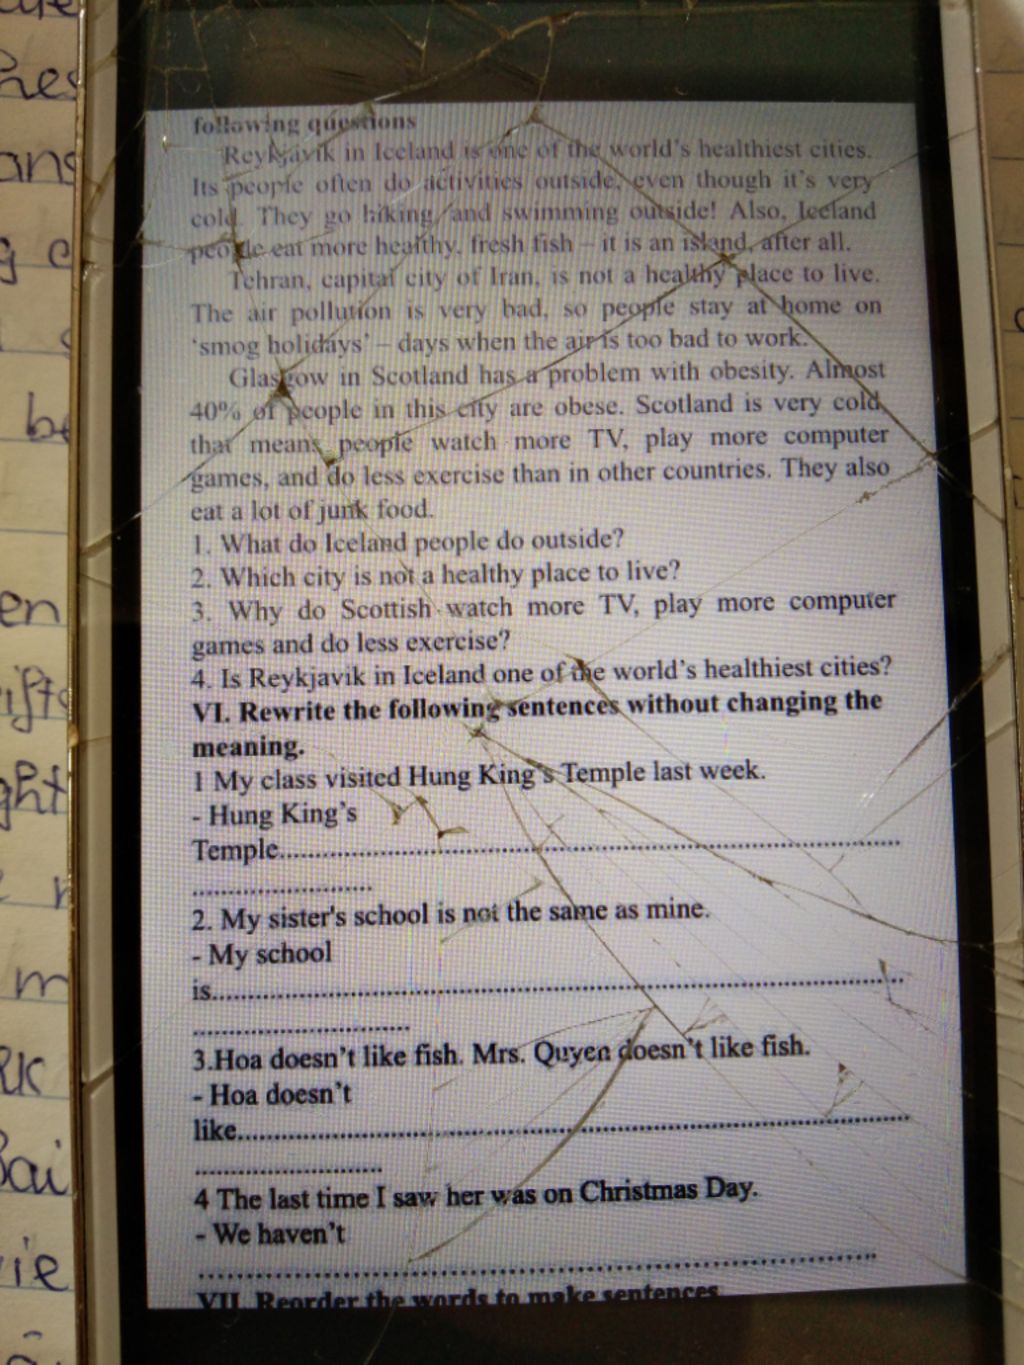 following questions
Reykjavik in Iceland is one of the world's healthiest cities.
Its people often do activities outside, even though it's very
cold. They go hiking and swimming outside! Also, Iceland
people eat more healthy, fresh fish – it is an island, after all.
Tehran, capital city of Iran, is not a healthy place to live.
The air pollution is very bad, so people stay at home on
'smog holidays' – days when the air is too bad to work.
Glasgow in Scotland has a problem with obesity. Almost
40% of people in this city are obese. Scotland is very cold,
that means people watch more TV, play more computer
games, and do less exercise than in other countries. They also
eat a lot of junk food.
1. What do Iceland people do outside?
2. Which city is not a healthy place to live?
3. Why do Scottish watch more TV, play more computer
games and do less exercise?
4. Is Reykjavik in Iceland one of the world's healthiest cities?
VI. Rewrite the following sentences without changing the
meaning.
1 My class visited Hung King's Temple last week.
- Hung King's
Temple......................................................................
........................
2. My sister's school is not the same as mine.
- My school
is......................................................................
........................
3.Hoa doesn't like fish. Mrs. Quyen doesn't like fish.
- Hoa doesn't
like......................................................................
........................
4 The last time I saw her was on Christmas Day.
- We haven't
......................................................................
VII. Reorder the words to make sentences